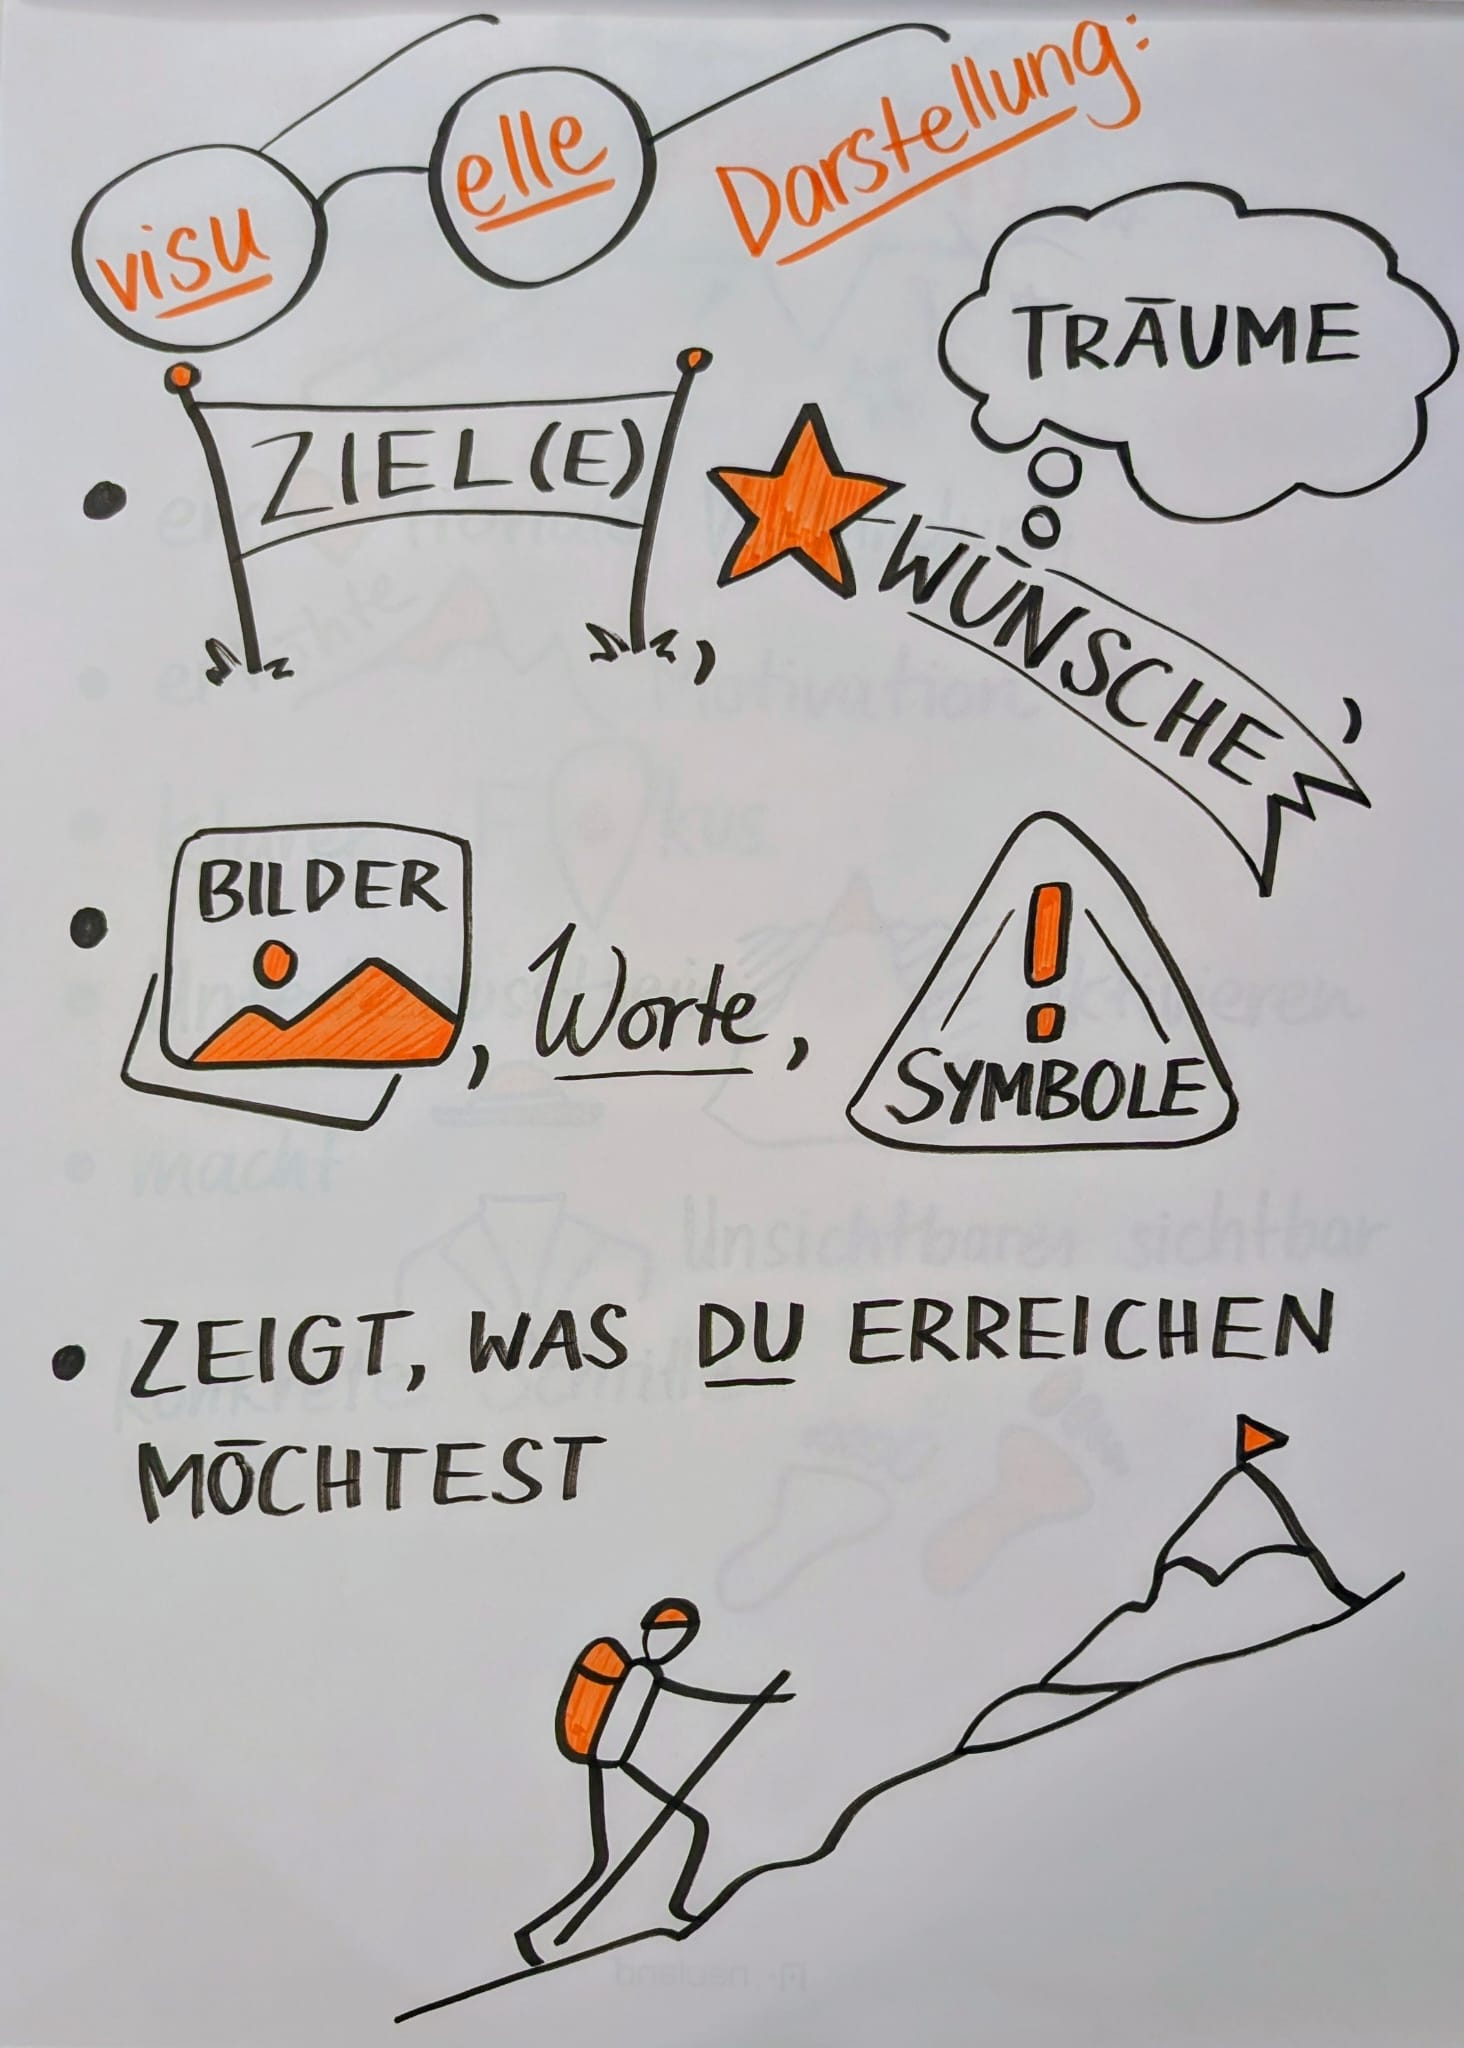 visuelle Darstellung:
• ZIEL(E), WÜNSCHE, TRÄUME
• BILDER, Worte, SYMBOLE
• ZEIGT, WAS DU ERREICHEN
MÖCHTEST